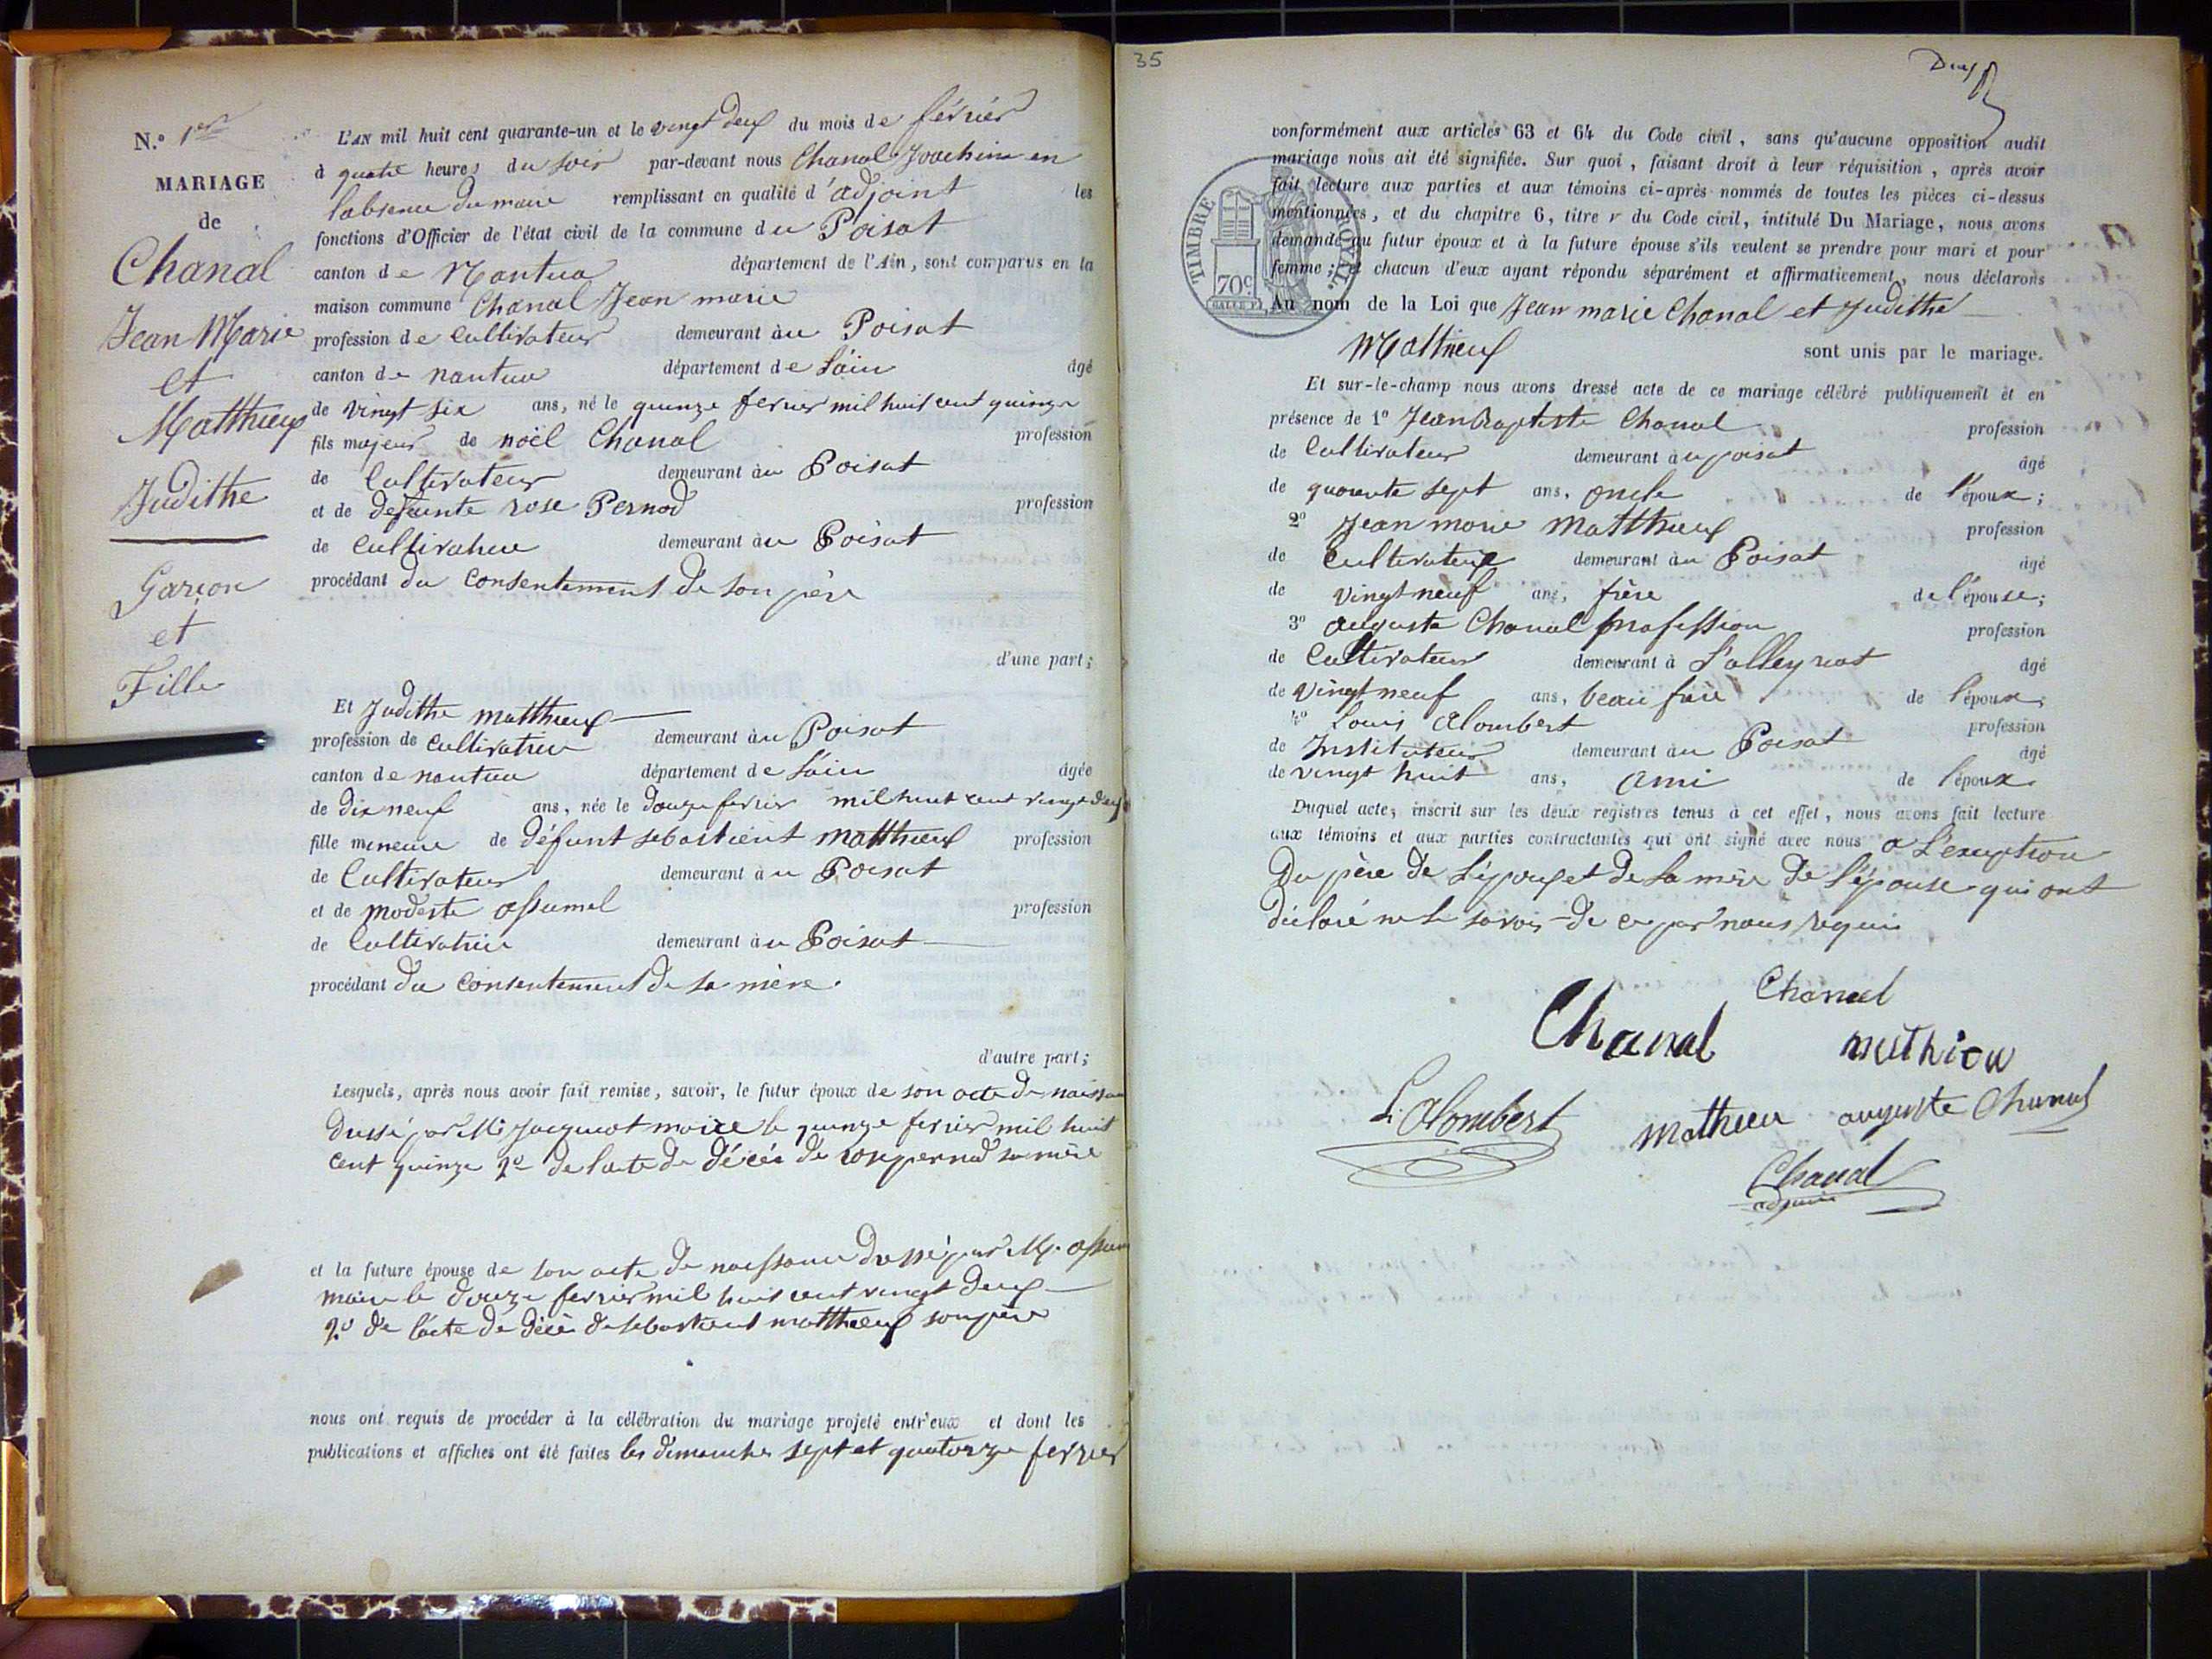 N.º 1er
MARIAGE
de
Chanal
Jean Marie
et
Matthieux
Judithe
Garçon
et
Fille
L'AN mil huit cent quarante-un et le vingt deux du mois de février
à quatre heures du soir par-devant nous Chanal Joachim en
l'absence du maire remplissant en qualité d'adjoint les
fonctions d'Officier de l'état civil de la commune du Poisat
canton de Nantua département de l'Ain, sont comparus en la
maison commune Chanal Jean marie
profession de Cultivateur demeurant au Poisat
canton de nantua département de l'ain âgé
de vingt six ans, né le quinze fevrier mil huit cent quinze
fils majeur de noël Chanal profession
de Cultivateur demeurant au Poisat
et de defunte rose Pernod profession
de Cultivatrice demeurant au Poisat
procédant du Consentement de son père
d'une part;
Et Judithe matthieux
profession de cultivatrice demeurant au Poisat
canton de nantua département de l'ain âgée
de dix neuf ans, née le douze fevrier mil huit cent vingt deux
fille mineure de défunt sebastient matthieux profession
de Cultivateur demeurant au Poisat
et de modeste assumel profession
de Cultivatrice demeurant au Poisat
procédant du Consentement de sa mère.
d'autre part;
Lesquels, après nous avoir fait remise, savoir, le futur époux de son acte de
dressé par Mr Jacquiot maire le quinze fevrier mil huit
cent quinze 2º de l'acte de décès de rose pernod sa mère
et la future épouse de son acte de naissance dressé par M.
maire le douze fevrier mil huit cent vingt deux
2º de l'acte de décès de sebastient matthieux son père
nous ont requis de procéder à la célébration du mariage projeté entr'eux et dont les
publications et affiches ont été faites les dimanches sept et quatorze fevrier
35
Deux
conformément aux articles 63 et 64 du Code civil, sans qu'aucune opposition audit
mariage nous ait été signifiée. Sur quoi, faisant droit à leur réquisition, après avoir
fait lecture aux parties et aux témoins ci-après nommés de toutes les pièces ci-dessus
mentionnées, et du chapitre 6, titre V du Code civil, intitulé Du Mariage, nous avons
demandé au futur époux et à la future épouse s'ils veulent se prendre pour mari et pour
femme; et chacun d'eux ayant répondu séparément et affirmativement, nous déclarons
Au nom de la Loi que Jean marie Chanal et Judithe
Matthieux sont unis par le mariage.
TIMBRE ROYAL.
70c.
Et sur-le-champ nous avons dressé acte de ce mariage célébré publiquement et en
présence de 1º Jean Baptiste Chanal profession
de Cultivateur demeurant au poisat âgé
de quarante sept ans, oncle de l'époux;
2º Jean marie Matthieux profession
de Cultivateur demeurant au Poisat âgé
de vingt neuf ans, frère de l'épouse;
3º auguste Chanal profession profession
de Cultivateur demeurant à L'alleyriat âgé
de vingt neuf ans, beau frère de l'époux;
4º Louis Alombert profession
de Instituteur demeurant au Poisat âgé
de vingt huit ans, ami de l'époux
Duquel acte, inscrit sur les deux registres tenus à cet effet, nous avons fait lecture
aux témoins et aux parties contractantes qui ont signé avec nous a L'exception
Du père de L'époux et de La mère de l'épouse qui ont
déclaré ne le savoir de ce par nous requis
Chanal
Chanal
mathieu
L. Alombert
mathieu
auguste Chanal
Chanal
adjoint